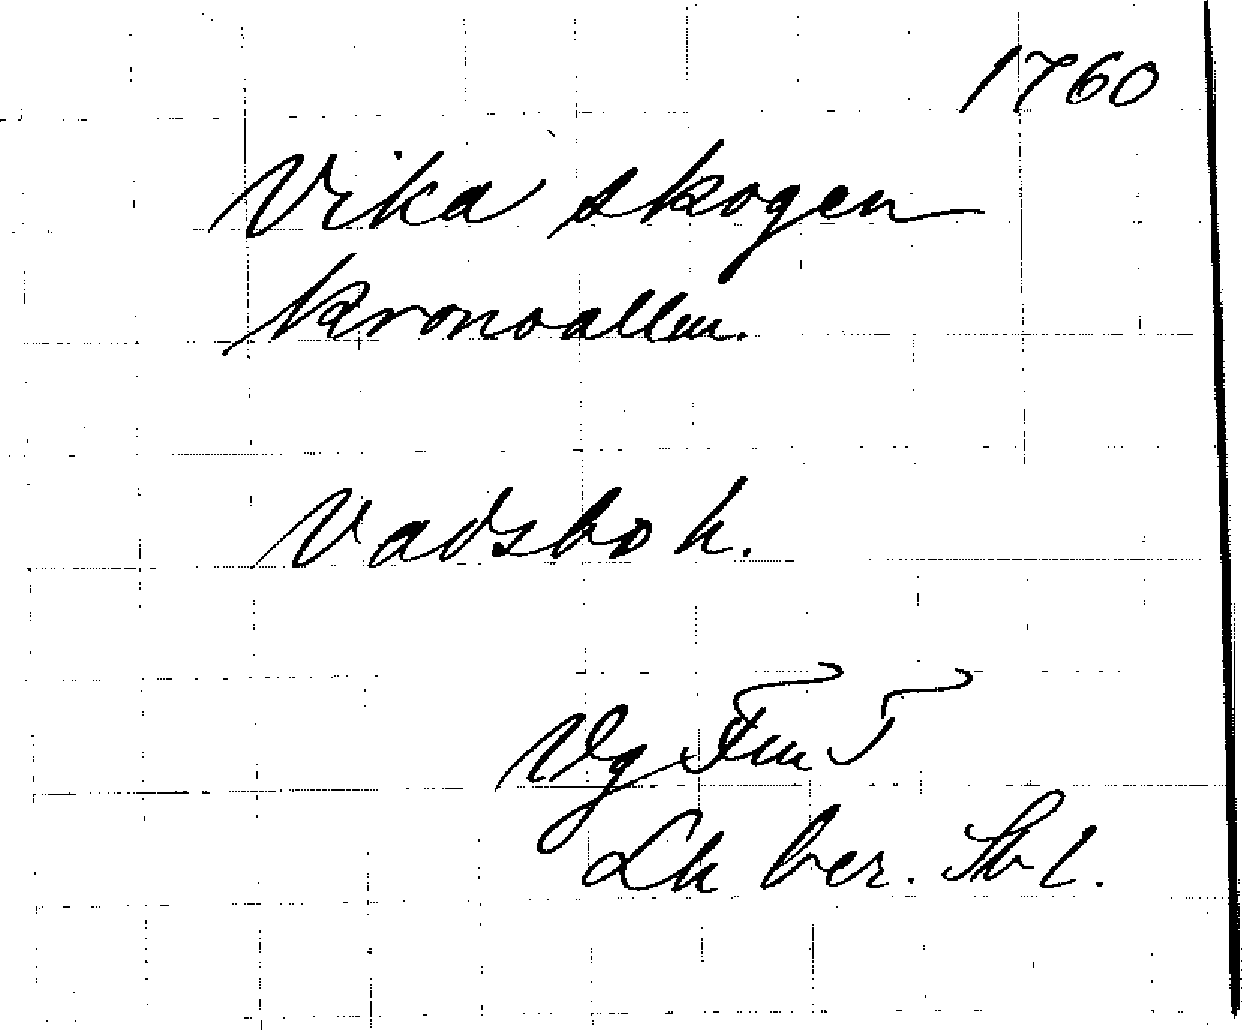 1760
Vika skogen
kronoallm.
Vadsbo h.
Vg Fm T
Lh ber. Sbl.